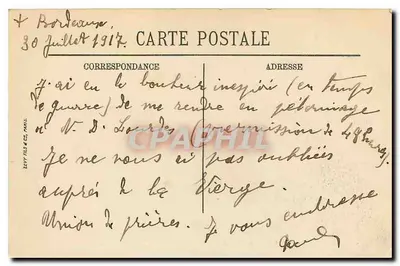 + Bordeaux.
30 Juillet 1917.
CARTE POSTALE
CORRESPONDANCE
ADRESSE
J'ai eu le bonheur inespéré (en temps
de guerre) de me rendre en pélerinage
à N. D. Lourdes (permission de 48 heures).
Je ne vous ai pas oubliées
auprès de la Vierge.
Union de prières. Je vous embrasse
LEVY FILS & CIE, PARIS.
CPAPHIL